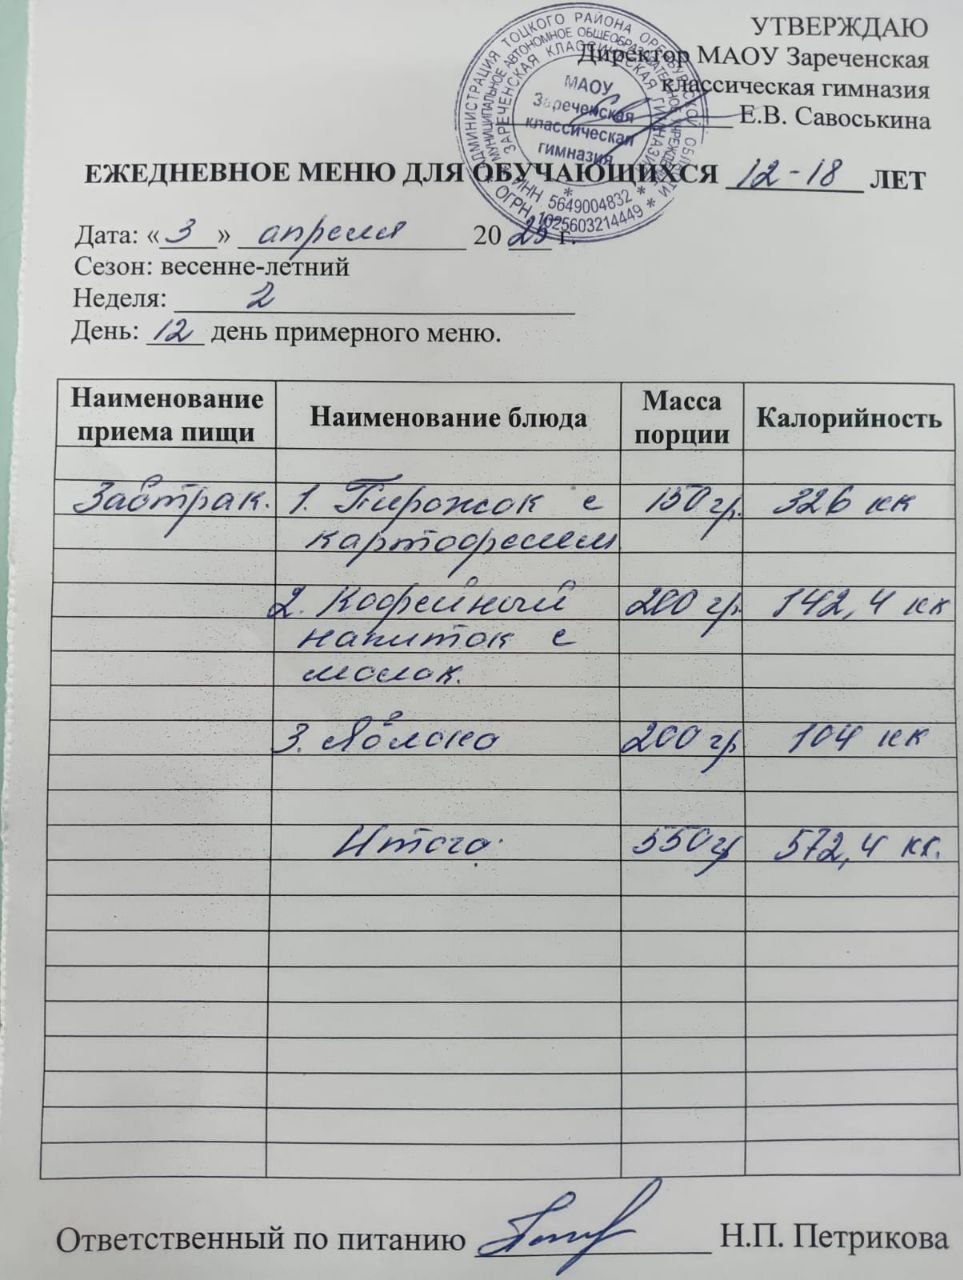 УТВЕРЖДАЮ
Директор МАОУ Зареченская
классическая гимназия
Е.В. Савоськина
АДМИНИСТРАЦИЯ ТОЦКОГО РАЙОНА ОРЕНБУРГСКОЙ ОБЛАСТИ
МУНИЦИПАЛЬНОЕ АВТОНОМНОЕ ОБЩЕОБРАЗОВАТЕЛЬНОЕ УЧРЕЖДЕНИЕ
ЗАРЕЧЕНСКАЯ КЛАССИЧЕСКАЯ ГИМНАЗИЯ
МАОУ
Зареченская
классическая
гимназия
* ИНН 5649004832 *
ОГРН 1025603214449 *
ЕЖЕДНЕВНОЕ МЕНЮ ДЛЯ ОБУЧАЮЩИХСЯ 12-18 ЛЕТ
Дата: «3» апреля 2025 г.
Сезон: весенне-летний
Неделя: 2
День: 12 день примерного меню.
Наименование приема пищи Наименование блюда Масса порции Калорийность
Завтрак. 1. Пирожок с 150 гр. 326 кк
картофелем
2. Кофейный 200 гр. 142,4 кк
напиток с
молок.
3. Яблоко 200 гр 104 кк
Итого: 550 гр 572,4 кк.
Ответственный по питанию Н.П. Петрикова